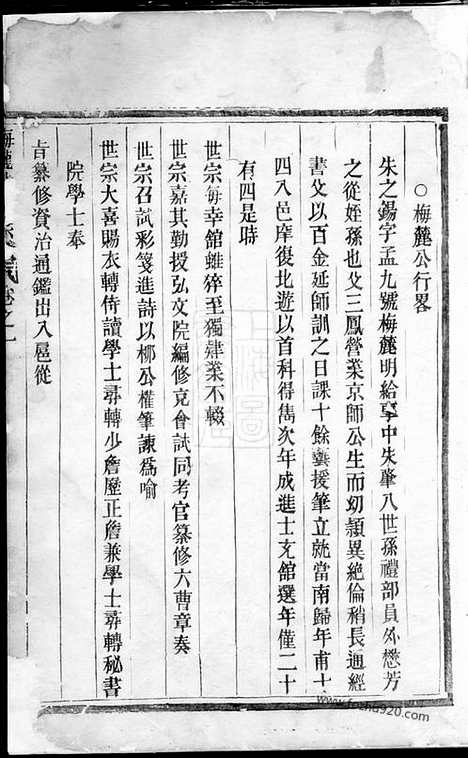 ○梅麓公行畧
朱之錫字孟九號梅麓明給事中朱肇八世孫禮部員外懋芳
之從姪孫也父三鳳營業京師公生而幼穎異絕倫稍長通經
書父以百金延師訓之日課十餘藝援筆立就當南歸年甫十
四入邑庠復北遊以首科得雋次年成進士充館選年僅二十
有四是時
世宗每幸館雖猝至獨肄業不輟
世宗嘉其勤授弘文院編修充會試同考官纂修六曹章奏
世宗召試彩箋進詩以柳公權筆諫爲喻
世宗大喜賜衣轉侍讀學士尋轉少詹歷正詹兼學士尋轉秘書
院學士奉
旨纂修資治通鑑出入扈從
梅麓
卷之一
www.fozhu920.com